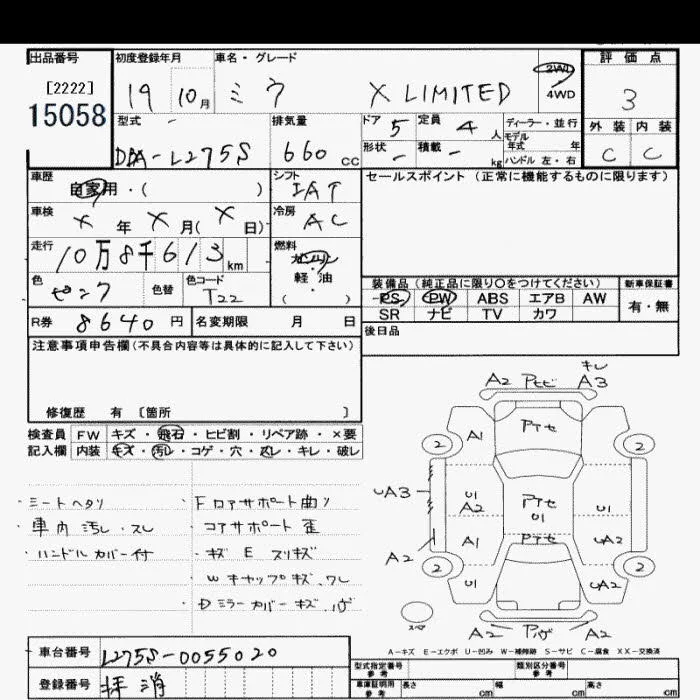 出品番号 初度登録年月 車名・グレード 評価点
[2222] 19 10月 ミラ X LIMITED 2WD 4WD 3
15058
型式 排気量 ドア 5 定員 4人 ディーラー・並行 外装 内装
DBA-L275S 660cc 形状 - 積載 - kg モデル年式 年 ハンドル 左・右 C C
車歴 自家用・( ) シフト IAT セールスポイント(正常に機能するものに限ります)
車検 X年X月(X日) 冷房 AC
走行 10万8千613km 燃料 ガソリン 軽油 ( ・ )
色 ピンク 色替 色コード T22 装備品(純正品に限り○をつけてください) 新車保証書
PS PW ABS エアB AW 有・無
SR ナビ TV カワ
R券 8640円 名変期限 月 日 後日品
注意事項申告欄(不具合内容等は具体的に記入して下さい)
修復歴 有 〔箇所 〕
検査員 FW キズ・飛石・ヒビ割・リペア跡・×要
記入欄 内装 キズ・汚レ・コゲ・穴・スレ・キレ・破レ
・シートヘタリ ・Fロアサポート曲リ
・車内汚レ.スレ コアサポート歪
・ハンドルカバー付 ・キズ E スリキズ
Wキャップキズ.ワレ
・Dミラーカバーキズ.ハゲ
キレ
A2 Pトビ A3
A1 Pアセ
2 2
UA3 U1 A2 Pアセ U1 U1
A2 A1 Pアセ UA2
2 2
U1 UA2
スペア A2 Pハゲ A2
A-キズ E-エクボ U-凹み W-補修跡 S-サビ C-腐食 XX-交換済
車台番号 L275S-0055020
登録番号 抹消
型式指定番号 参考 類別区分番号 参考
車庫証明用 参考 長さ cm 幅 cm 高さ cm